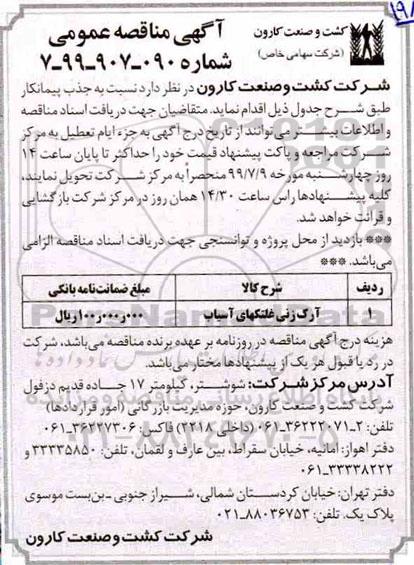 ۱۹۸
کشت و صنعت کارون
(شرکت سهامی خاص)
آگهی مناقصه عمومی
شماره ۰۹۰-۹۰۷-۹۹-۷
شرکت کشت و صنعت کارون در نظر دارد نسبت به جذب پیمانکار
طبق شرح جدول ذیل اقدام نماید. متقاضیان جهت دریافت اسناد مناقصه
و اطلاعات بیشتر می‌توانند از تاریخ درج آگهی به جزء ایام تعطیل به مرکز
شرکت مراجعه و پاکت پیشنهاد قیمت خود را حداکثر تا پایان ساعت ۱۴
روز چهارشنبه مورخه ۹۹/۷/۹ منحصراً به مرکز شرکت تحویل نمایند،
کلیه پیشنهادها راس ساعت ۱۴/۳۰ همان روز در مرکز شرکت بازگشایی
و قرائت خواهد شد.
*** بازدید از محل پروژه و توانسنجی جهت دریافت اسناد مناقصه الزامی
می‌باشد. ***
ردیف شرح کالا مبلغ ضمانت‌نامه بانکی
۱ آرک زنی غلتکهای آسیاب ۱۰۰٫۰۰۰٫۰۰۰ ریال
هزینه درج آگهی مناقصه در روزنامه بر عهده برنده مناقصه می‌باشد، شرکت
در رد یا قبول هر یک از پیشنهادها مختار می‌باشد.
آدرس مرکز شرکت: شوشتر، کیلومتر ۱۷ جاده قدیم دزفول
شرکت کشت و صنعت کارون، حوزه مدیریت بازرگانی (امور قراردادها)
تلفن: ۲-۳۶۲۲۲۰۷۱-۰۶۱ (داخلی ۲۲۱۸) فاکس: ۳۶۲۲۷۳۰۶-۰۶۱
دفتر اهواز: امانیه، خیابان سقراط، بین عارف و لقمان، تلفن: ۳۳۳۳۵۸۵۰ و
۳۳۳۳۸۲۲۲-۰۶۱
دفتر تهران: خیابان کردستان شمالی، شیراز جنوبی - بن‌بست موسوی
پلاک یک. تلفن: ۸۸۰۳۶۷۵۳-۰۲۱
شرکت کشت و صنعت کارون